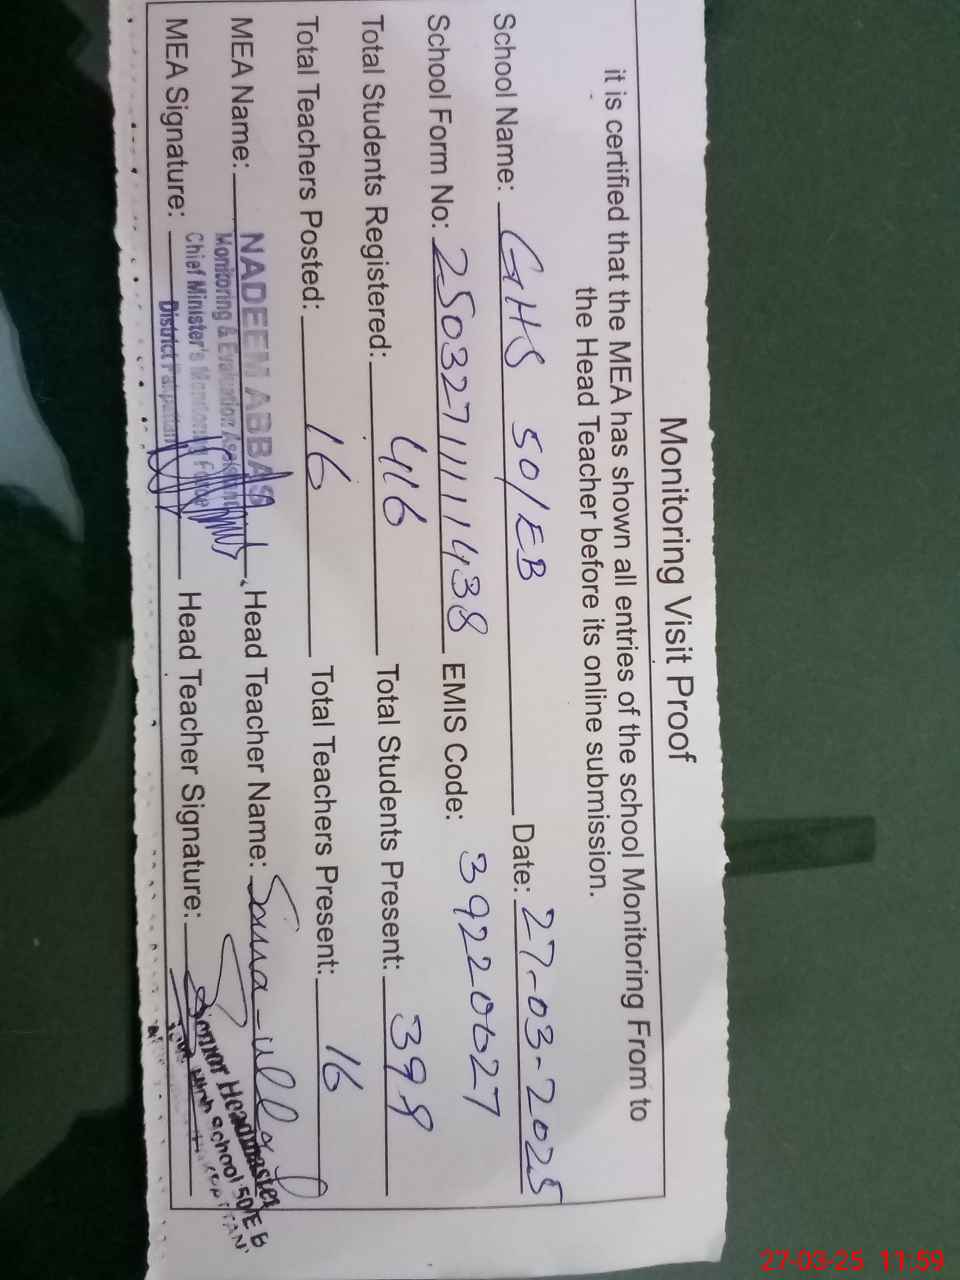 Monitoring Visit Proof
it is certified that the MEA has shown all entries of the school Monitoring From to
the Head Teacher before its online submission.
School Name: GHS 50/EB Date: 27-03-2025
School Form No: 250327111111438 EMIS Code: 39220027
Total Students Registered: 416 Total Students Present: 398
Total Teachers Posted: 16 Total Teachers Present: 16
MEA Name: NADEEM ABBAS Head Teacher Name: Sana-ullah
Monitoring & Evaluation Assistant
Chief Minister's Monitoring Force
District Pakpattan
MEA Signature: Head Teacher Signature:
Senior Headmaster
High School 50/EB
27-03-25 11:59